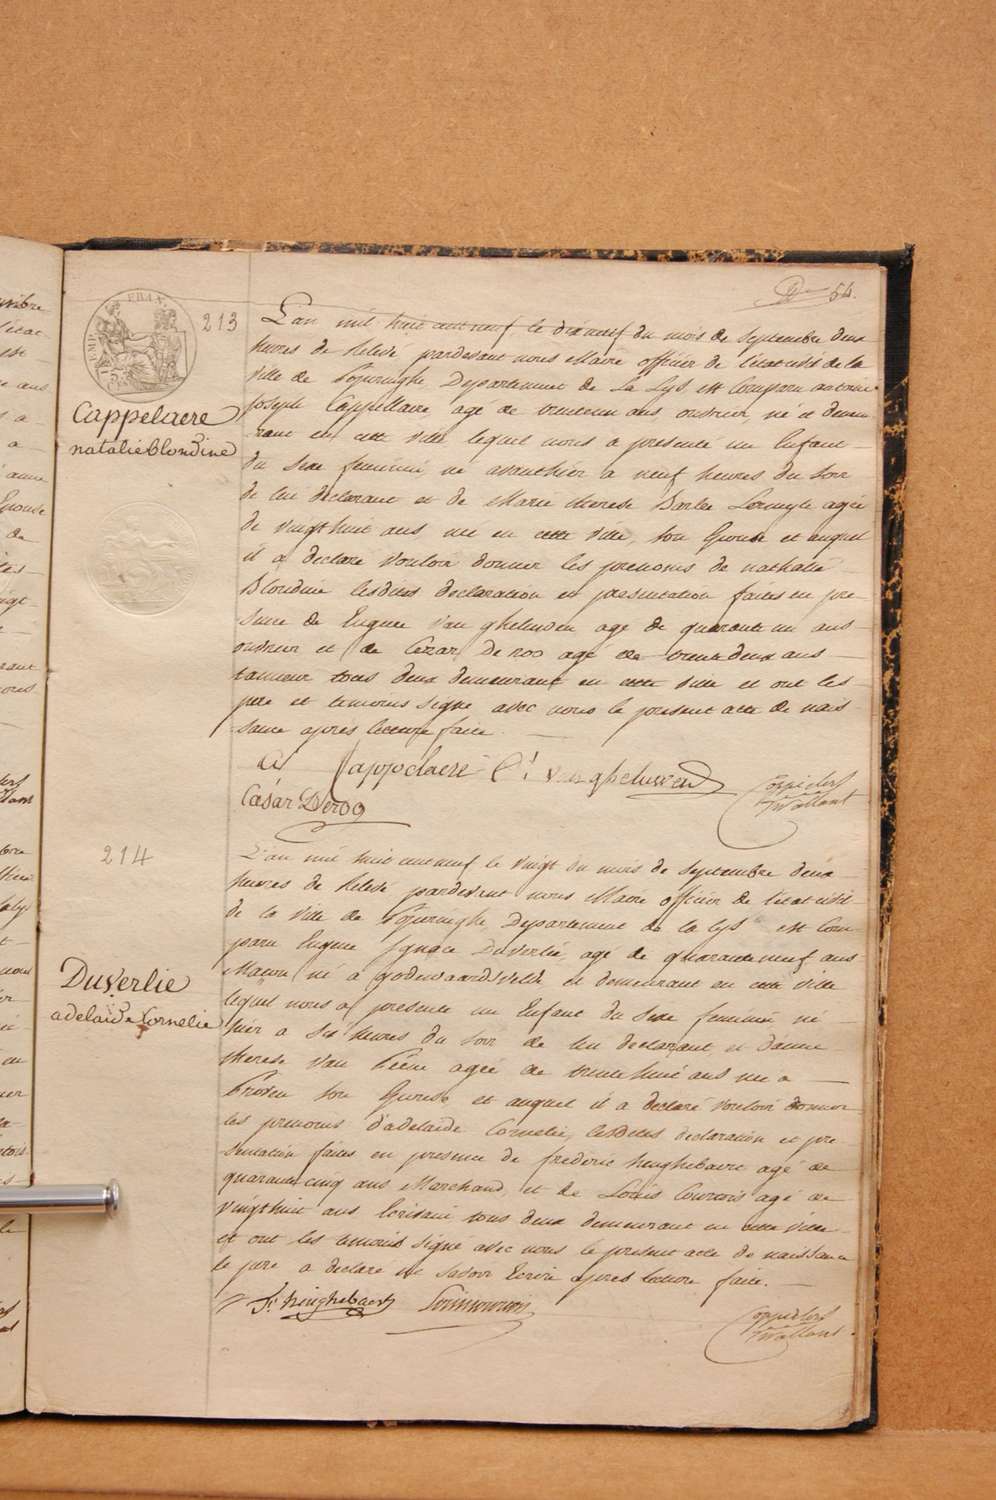 54.
EMPIRE FRAN.
213
L'an mil huit cent neuf le dixneuf du mois de Septembre deux
heures de relevé pardevant nous Maire officier de l'état civil de la
ville de Poperinghe, Departement de la Lys, est Comparu antoine
joseph Cappellaere, agé de trente un ans, ouvrier, né et demeu
rant en cette ville lequel nous a presenté un Enfant
du sexe feminin né avanthier a neuf heures du soir
de lui declarant et de Marie therese Barbe agée
de vingthuit ans née en cette ville, son Epouse et auquel
il a declaré vouloir donner les prenoms de nathalie
Blondine lesdites declaration et presentation faites en pre
sence de Eugene Van gheluwen agé de quarante un ans
ouvrier et de Cezar De roo agé de trente deux ans
tanneur tous deux demeurant en cette ville et ont les
pere et temoins signé avec nous le present acte de nais
sance après lecture faite.
Cappelaere
natalie blondine
A Cappelaere E: van gheluwen
Casar Deroo
214
L'an mil huit cent neuf le vingt du mois de Septembre deux
heures de relevé pardevant nous Maire officier de l'état civil
de la ville de Poperinghe, Departement de la Lys est Com
paru Eugene Ignace Duverlié, agé de quarante neuf ans
Maçon né a godewaardsvelde et demeurant en cette ville
lequel nous a presenté un Enfant du sexe feminin né
hier a six heures du soir de lui declarant et d'anne
therese Van agée de trente huit ans née a
Proven son Epouse et auquel il a declaré vouloir donner
les prenoms d'adelaide Cornelie, lesdites declaration et pre
sentation faites en presence de frederic henghebaert agé de
quarante cinq ans Marchand, et de Louis Courtois agé de
vingthuit ans Ecrivain tous deux demeurant en cette ville
et ont les temoins signé avec nous le present acte de naissance
le pere a declaré ne savoir Ecrire après lecture faite.
Duverlie
adelaide Cornelie
fr: henghebaert